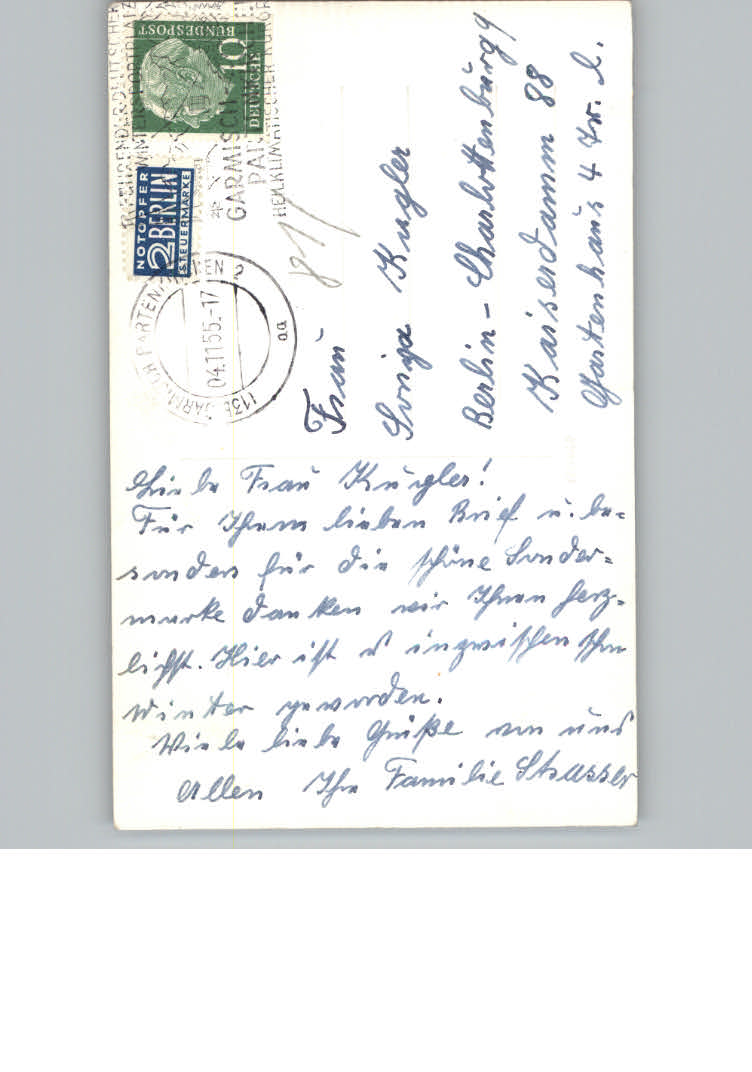 DEUTSCHE
BUNDESPOST
10
NOTOPFER
2 BERLIN
STEUERMARKE
GARMISCH
HEILKLIMATISCHER KURORT
GARMISCH-PARTENKIRCHEN 2
04.11.55.-17
aa
Frau
Sonja Kugler
Berlin-Charlottenburg 9
Kaiserdamm 88
Gartenhaus 4 Tr. l.
Liebe Frau Kugler!
Für Ihren lieben Brief u. be=
sonders für die schöne Sonder=
marke danken wir Ihnen herz=
lichst. Hier ist es inzwischen schon
Winter geworden.
Viele liebe Grüße von uns
allen Ihre Familie Strasser